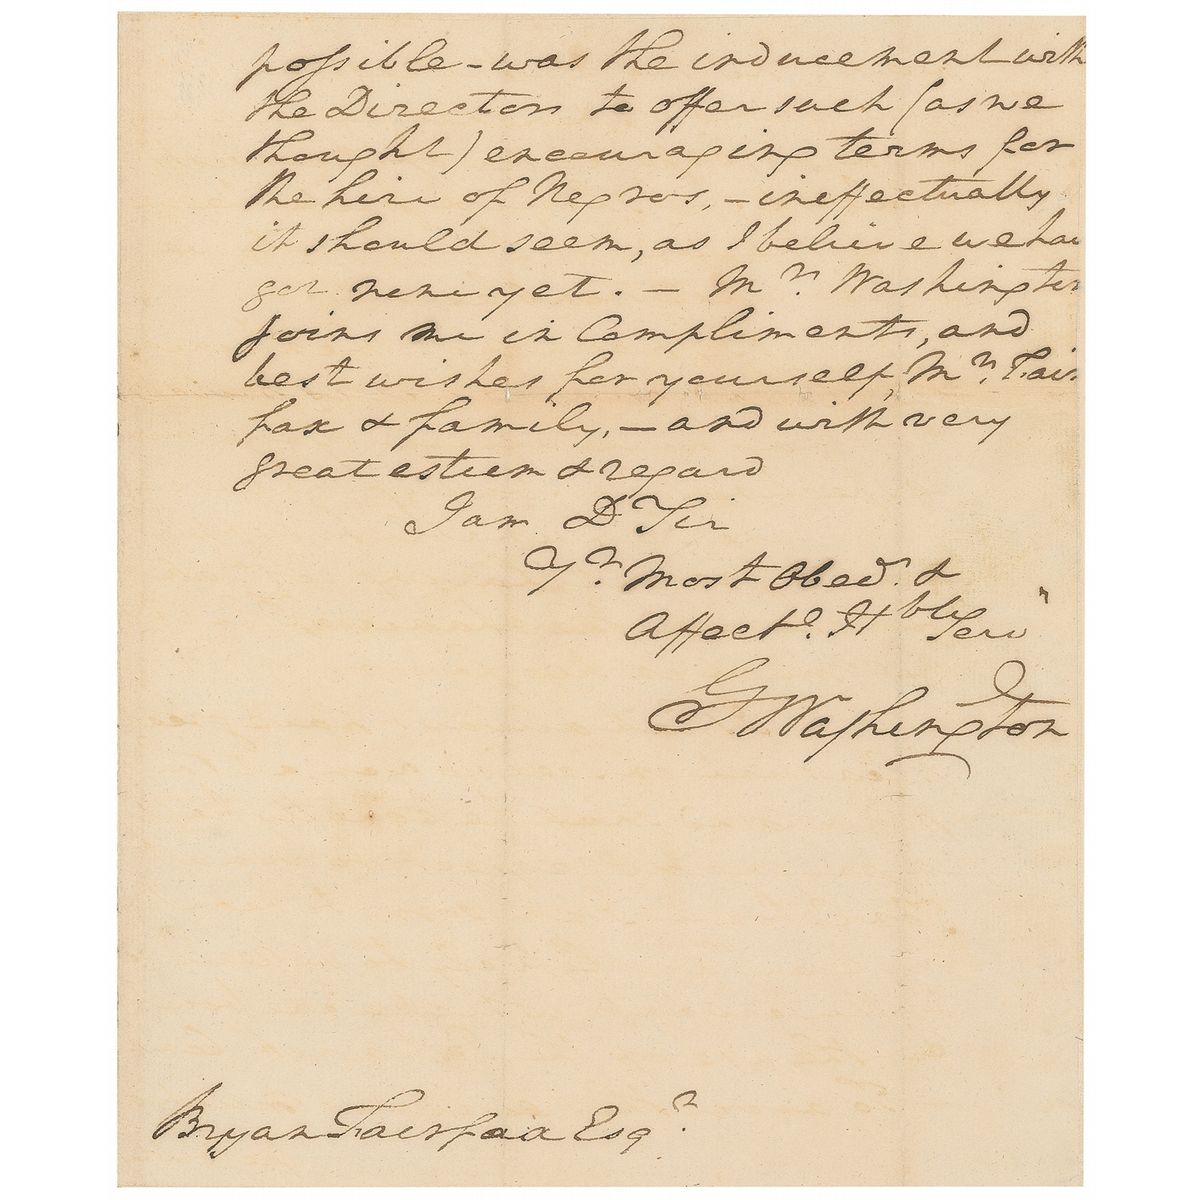 possible – was the inducement with
the Directors to offer such (as we
thought) encouraging terms for
the hire of Negros, – ineffectually
it should seem, as I believe we hav
got none yet. – Mrs. Washington
joins me in Compliments, and
best wishes for yourself, Mrs. Fair
fax & family, – and with very
great esteem & regard
I am Dr Sir
Yr. Most Obedt. &
Affecte. Hble Serv
GWashington
Bryan Fairfax Esqr.